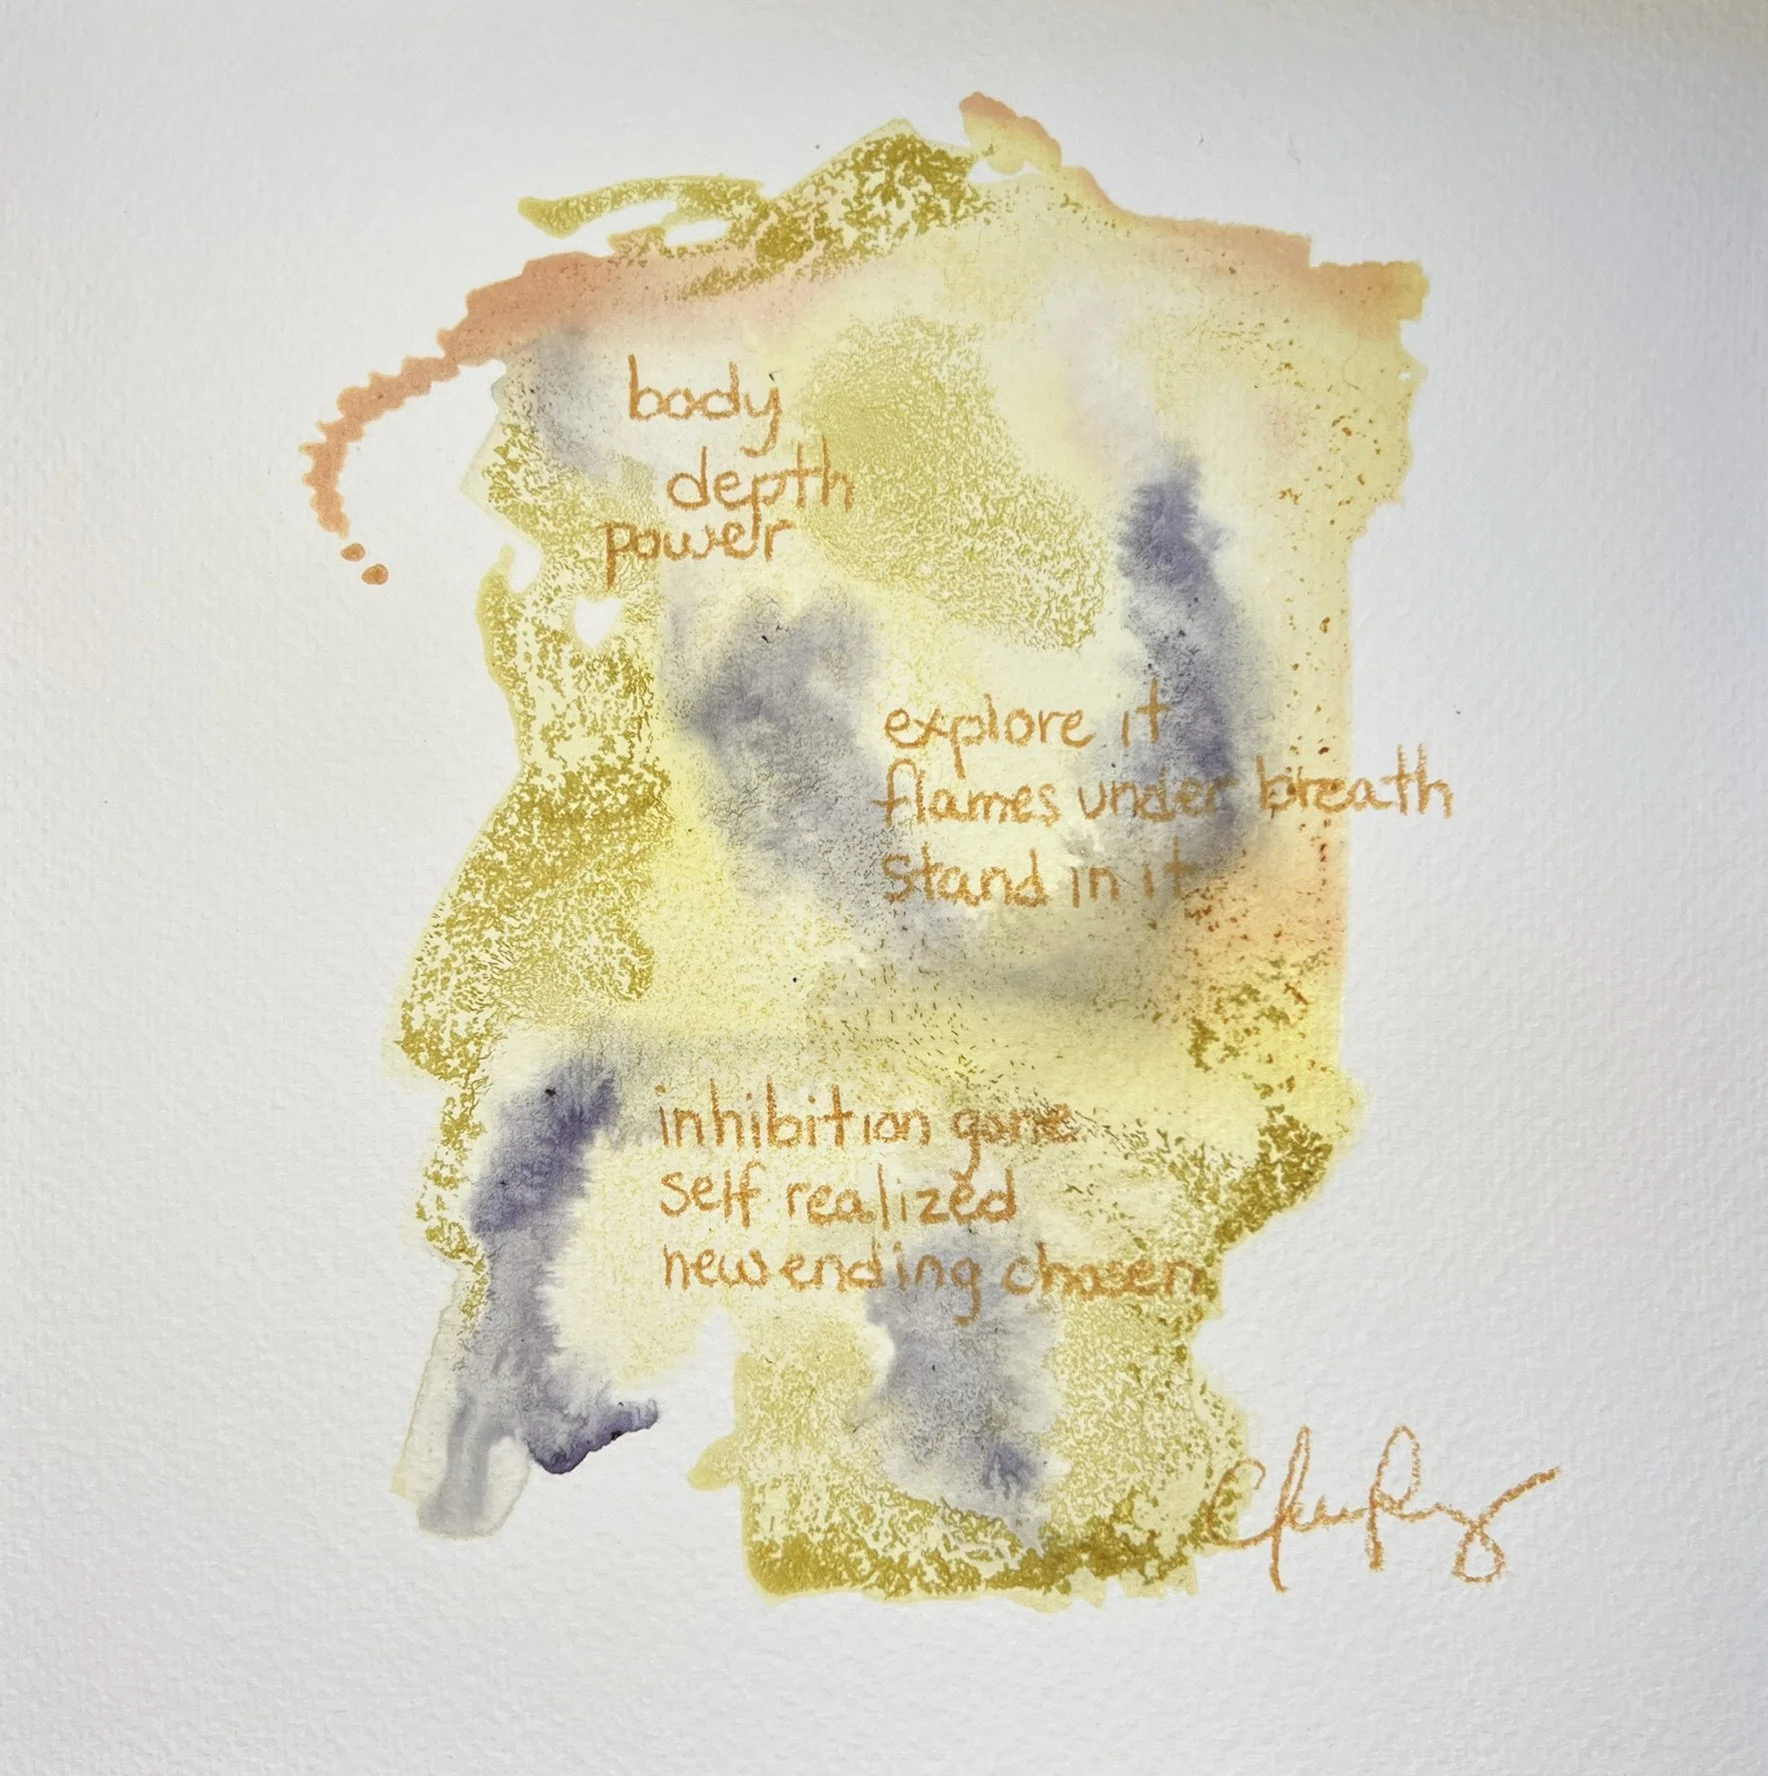 body
depth
power
explore it
flames under breath
stand in it
inhibition gone
self realized
new ending chosen